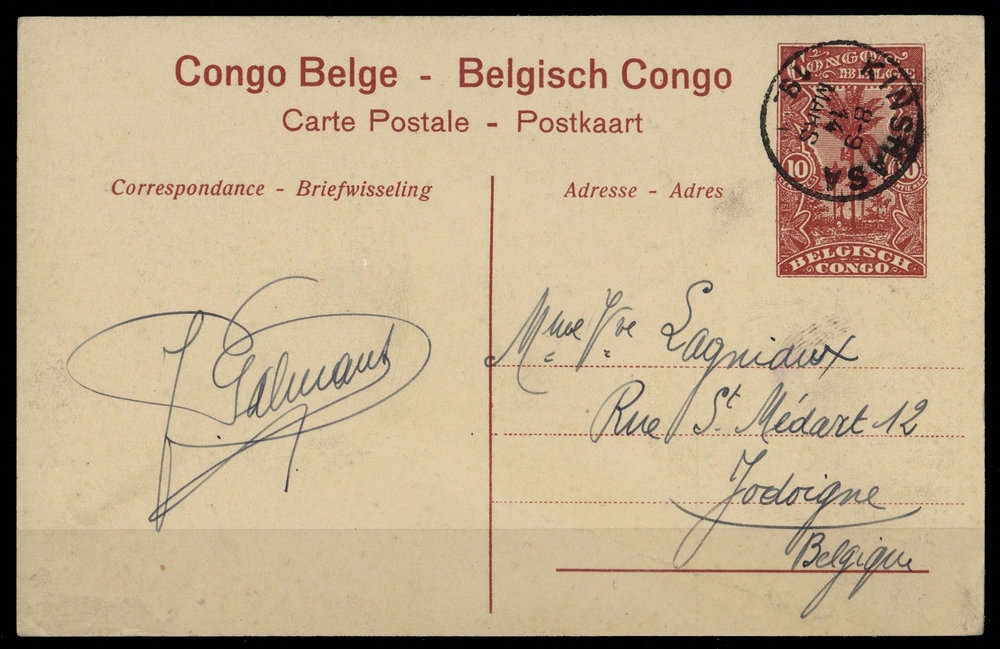 Congo Belge - Belgisch Congo
Carte Postale - Postkaart
Correspondance - Briefwisseling
Adresse - Adres
CONGO
BELGE
10
BELGISCH
CONGO
KINSHASA
8-9
14
MARS
Mme Vve Lagniaux
Rue St Médart 12
Jodoigne
Belgique